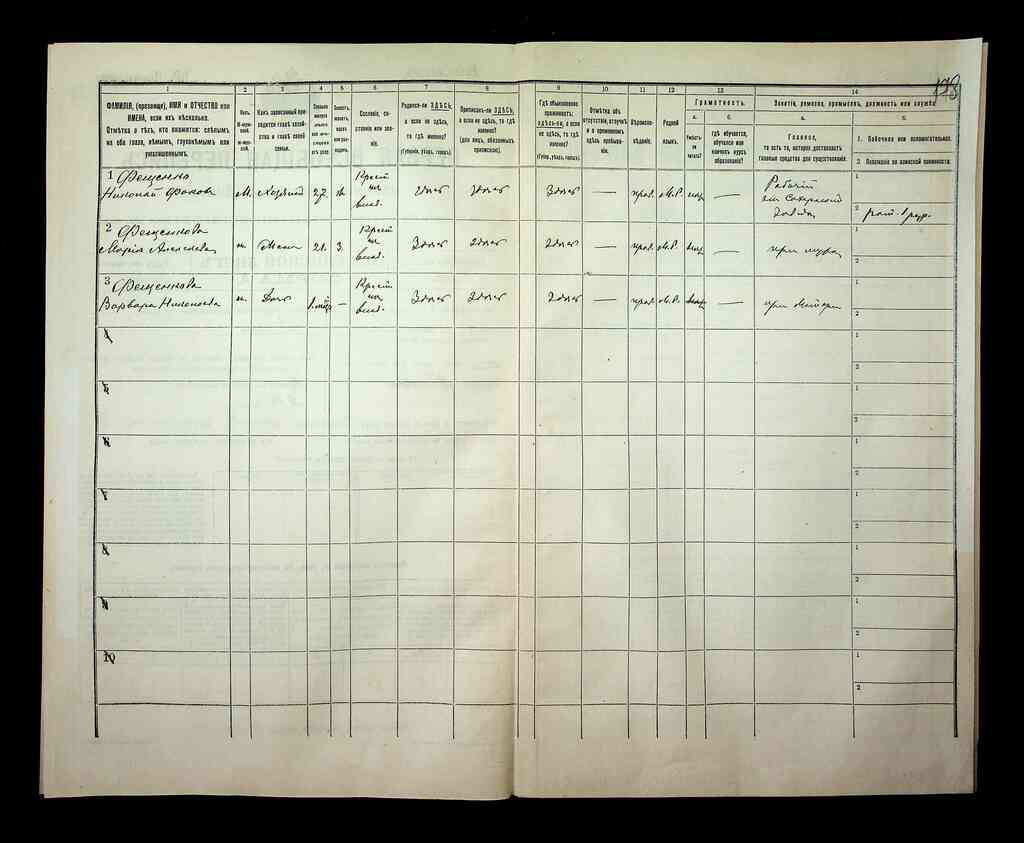 198
1 2 3 4 5 6 7 8 9 10 11 12 13 14
ФАМИЛІЯ, (прозвище), ИМЯ и ОТЧЕСТВО или
ИМЕНА, если ихъ нѣсколько.
Отмѣтка о тѣхъ, кто окажется: слѣпымъ
на оба глаза, нѣмымъ, глухонѣмымъ или
умалишеннымъ.
Полъ.
М-муж-
ской.
Ж-жен-
скій.
Какъ записанный при-
ходится главѣ хозяй-
ства и главѣ своей
семьи.
Сколько
минуло
лѣтъ
Холостъ,
женатъ,
вдовъ
или раз-
веденъ.
Сословіе, со-
стояніе или зва-
ніе.
Родился-ли ЗДѢСЬ,
а если не здѣсь,
то гдѣ именно?
(Губернія, уѣздъ, городъ).
Приписанъ-ли ЗДѢСЬ,
а если не здѣсь, то гдѣ
именно?
(для лицъ, обязанныхъ
припискою).
Гдѣ обыкновенно
проживаетъ:
здѣсь-ли, а если
не здѣсь, то гдѣ
именно?
(Губер., уѣздъ, городъ).
Отмѣтка объ
отсутствіи, отлучкѣ
и о временномъ
здѣсь пребыва-
ніи.
Вѣроиспо-
вѣданіе.
Родной
языкъ.
Грамотность.
а.
Умѣетъ
ли
читать?
б.
Гдѣ обучается,
обучался или
кончилъ курсъ
образованія?
Занятіе, ремесло, промыселъ, должность или служба.
а.
Главное,
то есть то, которое доставляетъ
главныя средства для существованія.
б.
1. Побочное или вспомогательное.
2. Положеніе по воинской повинности.
1 Фещенко
Николай
М. Хозяинъ 27. ж.
Здѣсь Здѣсь Здѣсь — прав. М.Р. —
Рабочій
1
2
2 Фещенкова
Марія Алексѣева
ж. Жена 21. З.
Здѣсь Здѣсь Здѣсь — прав. М.Р. —
при мужѣ
1
2
3 Фещенкова
Варвара Николаева
ж. Дочь —
Здѣсь Здѣсь Здѣсь — прав. М.Р. —
при матери
1
2
4
1
2
5
1
2
6
1
2
7
1
2
8
1
2
9
1
2
10
1
2